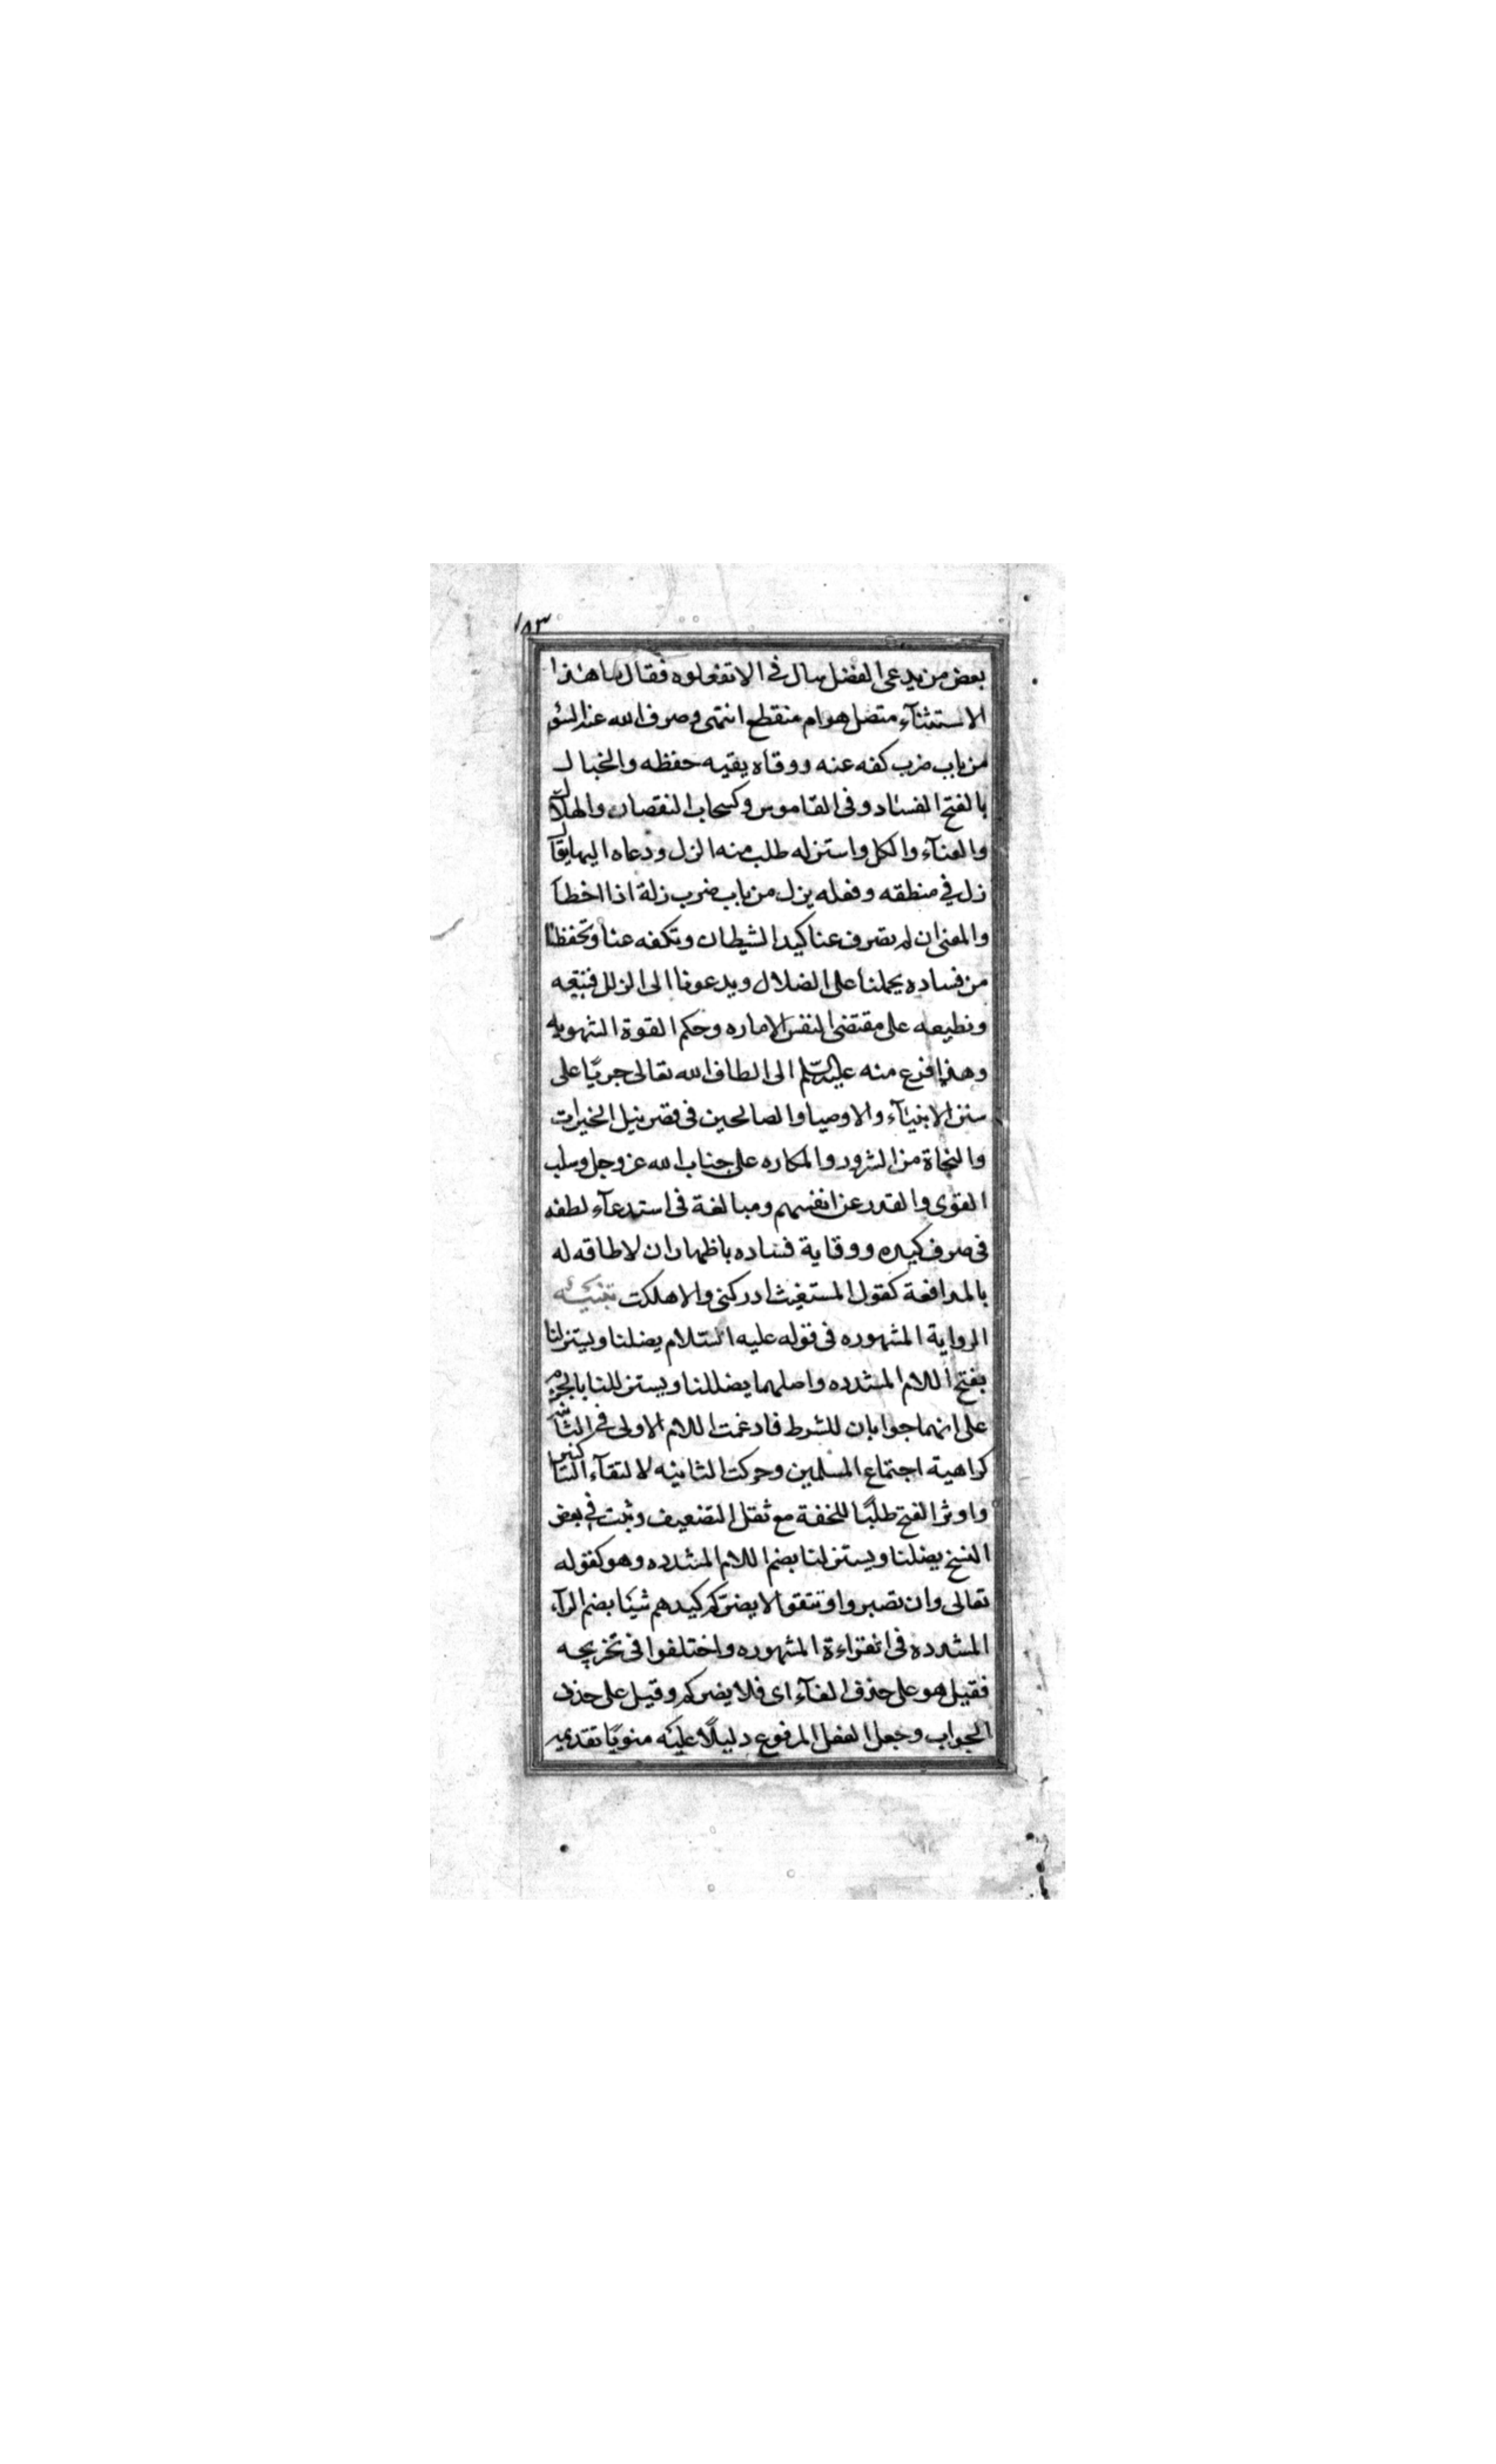 ١٨٣
بعض من يدعى الفضل سال فى الا تفعلوه فقال ما هذا
الاستثنآء متصل هو ام منقطع انتهى وصرف الله عنه السوء
من باب ضرب كفه عنه ووقاه يقيه حفظه والخبال
بالفتح الفساد وفى القاموس وكسحاب النقصان والهلاك
والعنآء والكل واستزله طلب منه الزلل ودعاه اليها يقال
زل فى منطقه وفعله يزل من باب ضرب زلة اذا اخطأ
والمعنى ان لم تصرف عنا كيد الشيطان وتكفه عنا وتحفظنا
من فساده يحملنا على الضلال ويدعونا الى الزلل فنتبعه
ونطيعه على مقتضى النفس الاماره وحكم القوة الشهويه
وهذا فزع منه عليه السلم الى الطاف الله تعالى جريًا على
سنن الانبيآء والاوصيا والصالحين فى قصر نيل الخيرات
والنجاة من الشرور والمكاره على جناب الله عز وجل وسلب
القوى والقدر عن انفسهم ومبالغة فى استدعآء لطفه
فى صرف كيده ووقاية فساده باظهار ان لا طاقه له
بالمدافعة كقول المستغيث ادركنى والا هلكت تنبيه
الرواية المشهوره فى قوله عليه السلام يضلنا ويستزلنا
بفتح اللام المشدده واصلهما يضللنا ويستزللنا بالجزم
على انهما جوابان للشرط فادغمت اللام الاولى فى الثانيه
كراهية اجتماع المسلمين وحركت الثانيه لالتقآء الساكنين
واوثر الفتح طلبًا للخفة مع ثقل التضعيف وثبت فى بعض
النسخ يضلنا ويستزلنا بضم اللام المشدده وهو كقوله
تعالى وان تصبروا وتتقوا لا يضركم كيدهم شيئا بضم الرآء
المشدده فى القراءة المشهوره واختلفوا فى تخريجه
فقيل هو على حذف الفآء اى فلا يضركم وقيل على حذف
الجواب وجعل الفعل المرفوع دليلًا عليه منويًا تقديمه